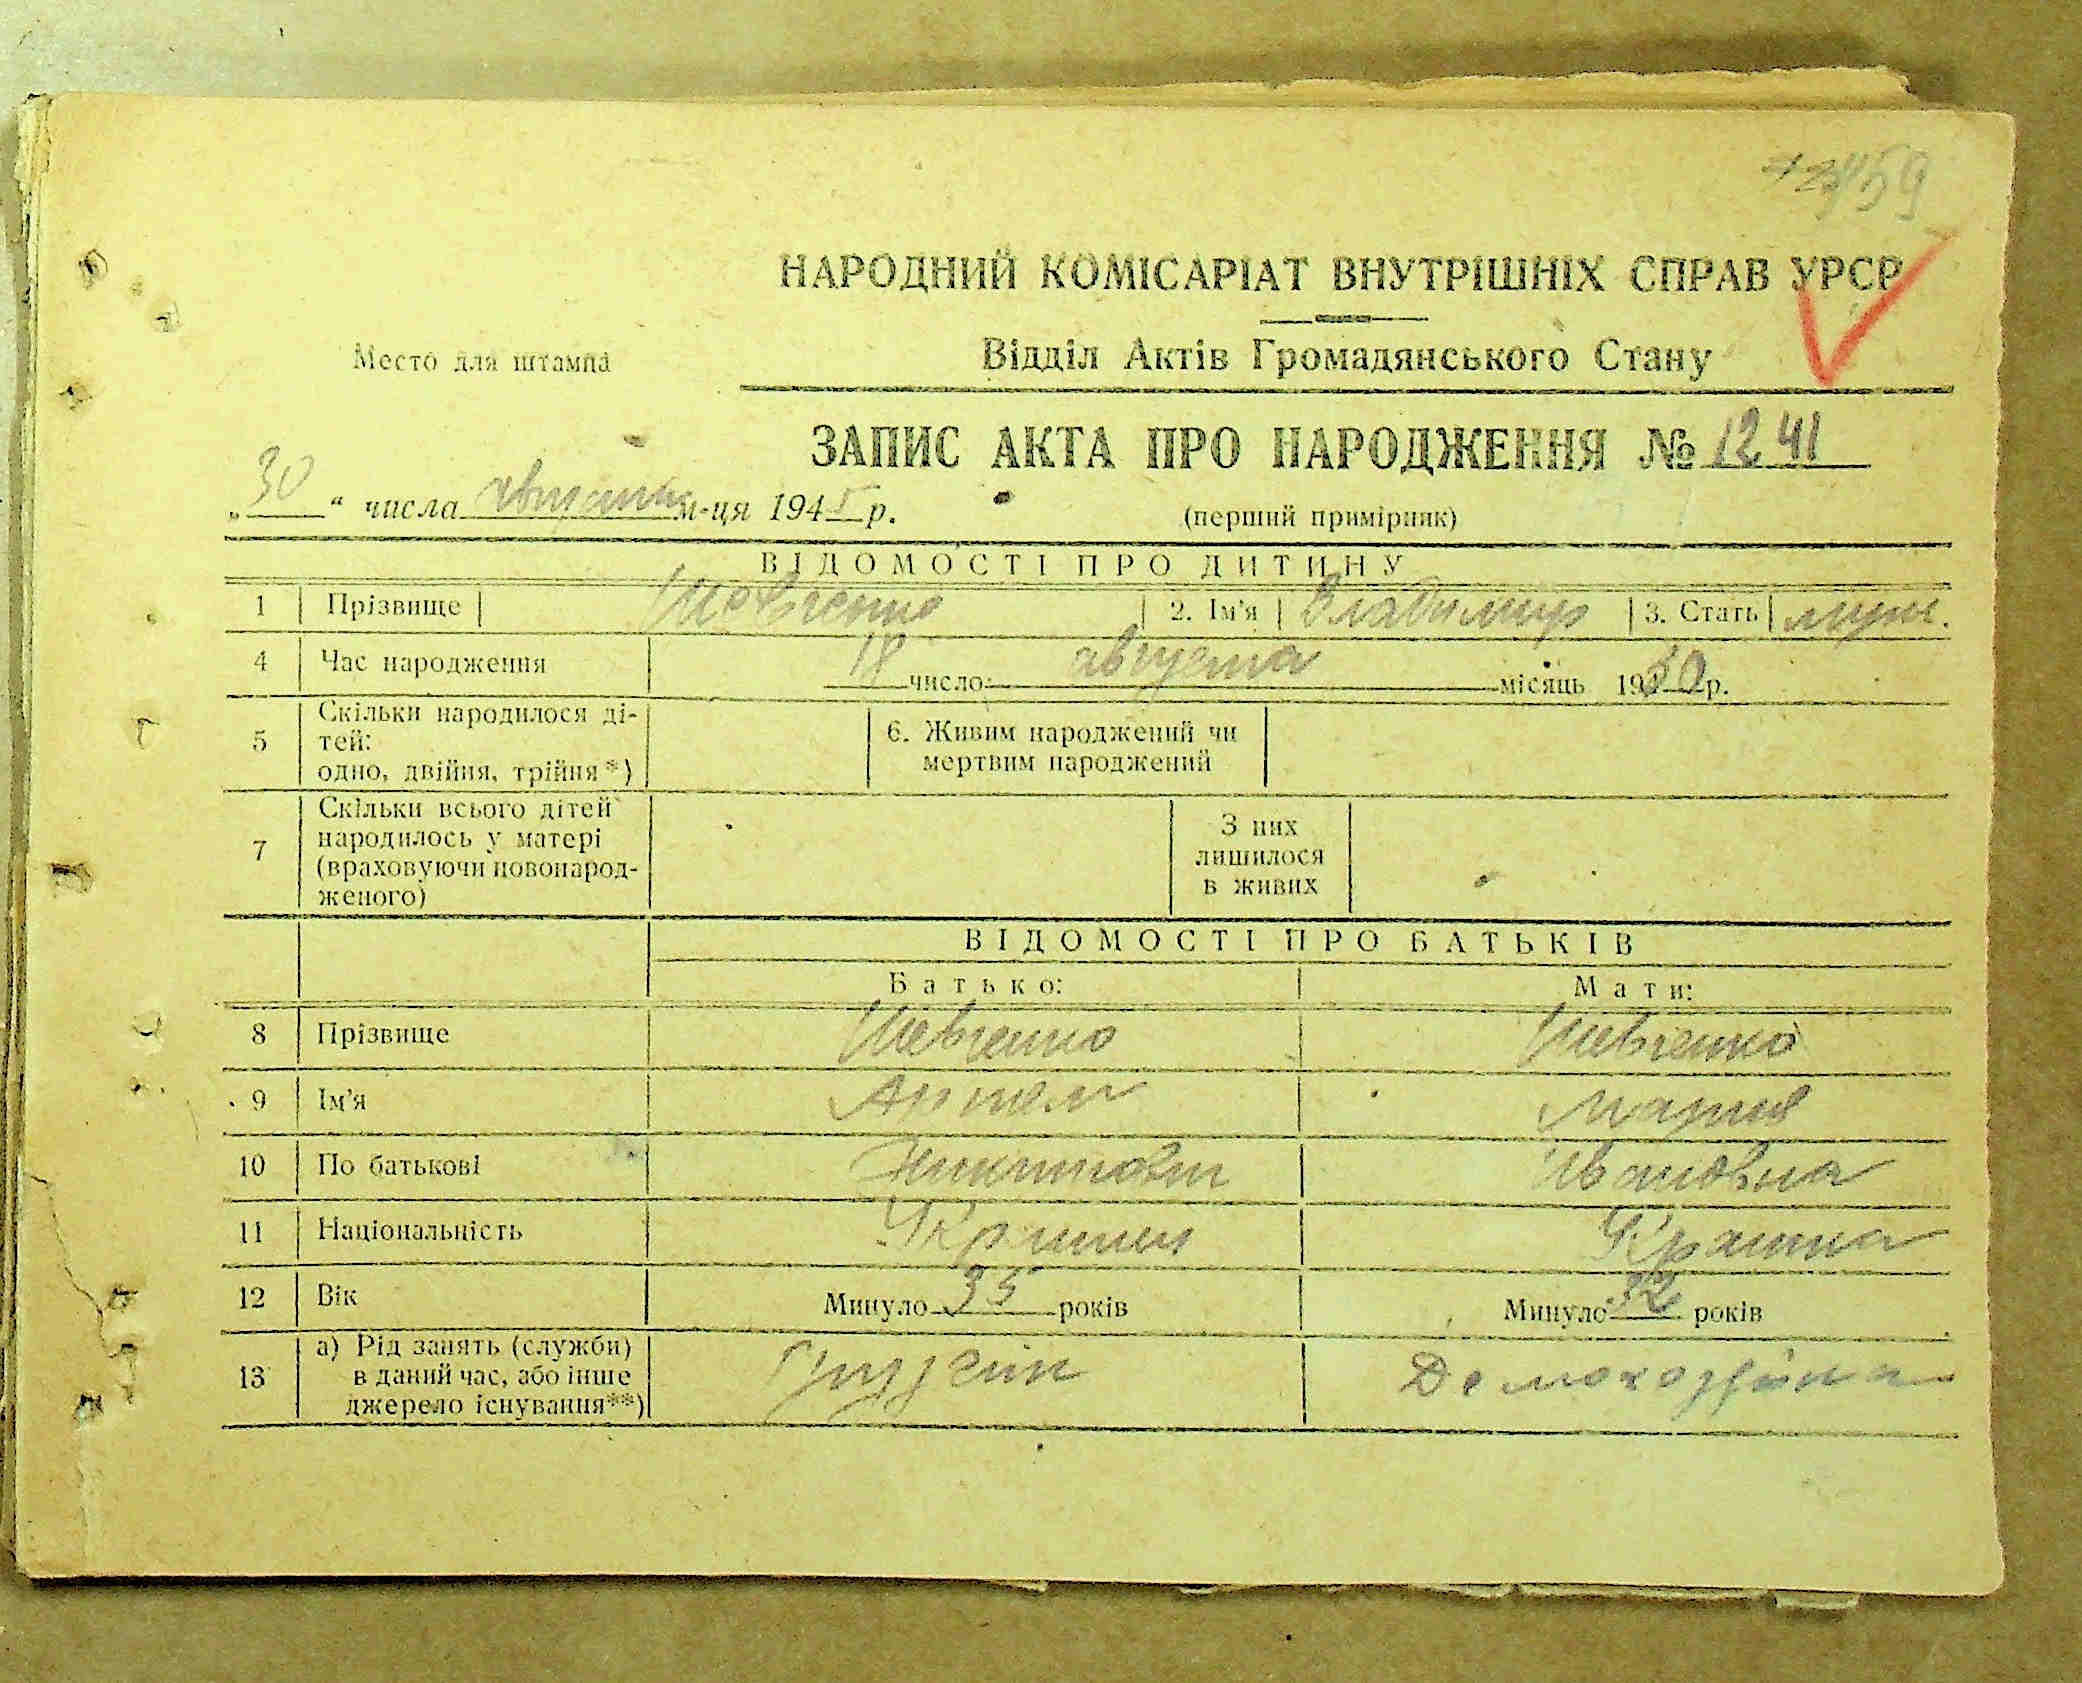 459
НАРОДНИЙ КОМІСАРІАТ ВНУТРІШНІХ СПРАВ УРСР
Место для штампа
Відділ Актів Громадянського Стану
ЗАПИС АКТА ПРО НАРОДЖЕННЯ № 1241
„30“ числа августа м-ця 1945 р.
(перший примірник)
ВІДОМОСТІ ПРО ДИТИНУ
1 Прізвище Шевченко 2. Ім'я Владимир 3. Стать муж.
4 Час народження 18 число августа місяць 19 р.
5 Скільки народилося ді-
тей:
одно, двійня, трійня*)
6. Живим народжений чи
мертвим народжений
7 Скільки всього дітей
народилось у матері
(враховуючи новонарод-
женого)
З них
лишилося
в живих
ВІДОМОСТІ ПРО БАТЬКІВ
Батько: Мати:
8 Прізвище Шевченко Шевченко
9 Ім'я Артем Мария
10 По батькові Никитович Ивановна
11 Національність Украинец Украинка
12 Вік Минуло 35 років Минуло 32 років
13 а) Рід занять (служби)
в даний час, або інше
джерело існування**)
Домохозяйка